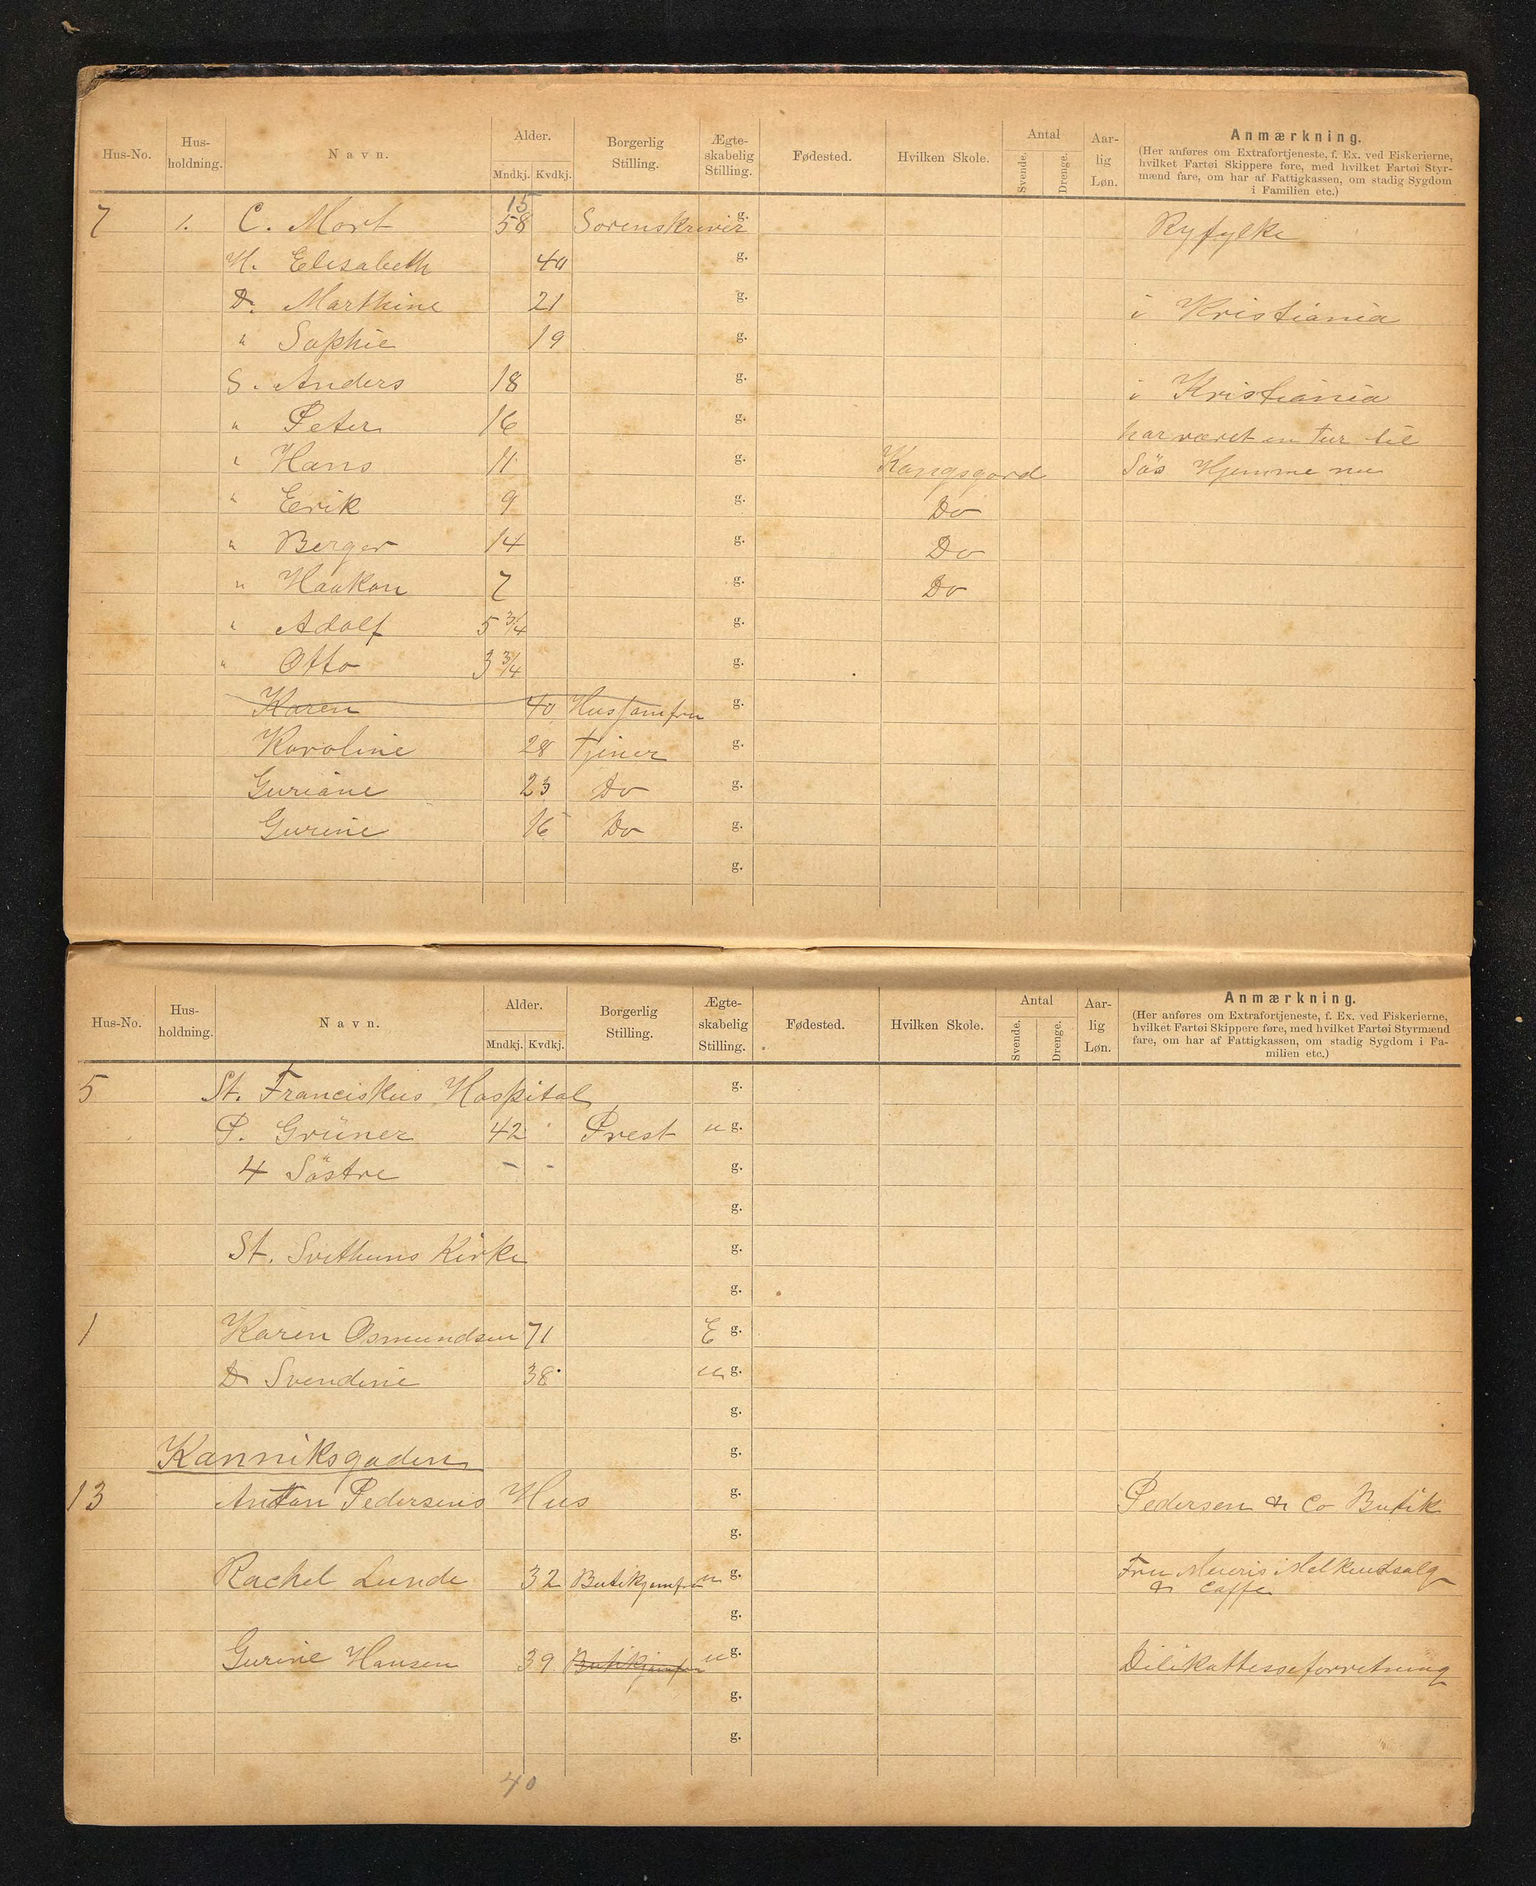 Hus-No. Hus-holdning. Navn. Alder. Mndkj. Kvdkj. Borgerlig Stilling. Ægte-skabelig Stilling. Fødested. Hvilken Skole. Antal Svende. Drenge. Aar-lig Løn. Anmærkning.
(Her anføres om Extrafortjeneste, f. Ex. ved Fiskerierne,
hvilket Fartøi Skippere føre, med hvilket Fartøi Styr-
mænd fare, om har af Fattigkassen, om stadig Sygdom
i Familien etc.)
15
7 1. C. Mort 58 Sorenskriver g. Ryfylke
H. Elisabeth 40 g.
D. Marthine 21 g. i Kristiania
" Sophie 19 g.
S. Anders 18 g. i Kristiania
" Peter 16 g. har været en Tur til
" Hans 11 g. Kongsgord Søs Hjemme nu
" Eerik 9 g. Do
" Berger 14 g. Do
" Haakon 7 g. Do
" Adolf 5 3/4 g.
" Otto 3 3/4 g.
Karen 40 Husjomfru g.
Karoline 28 Tjener g.
Guriane 23 Do g.
Gurine 16 Do g.
g.
Hus-No. Hus-holdning. Navn. Alder. Mndkj. Kvdkj. Borgerlig Stilling. Ægte-skabelig Stilling. Fødested. Hvilken Skole. Antal Svende. Drenge. Aar-lig Løn. Anmærkning.
(Her anføres om Extrafortjeneste, f. Ex. ved Fiskerierne,
hvilket Fartøi Skippere føre, med hvilket Fartøi Styrmænd
fare, om har af Fattigkassen, om stadig Sygdom i Fa-
milien etc.)
5 St. Franciskus Hospital g.
P. Grüner 42 Prest u g.
4 Söstre - - g.
g.
St. Svithuns Kirke g.
g.
1 Karen Osmundsen 71 E g.
D Svendine 38 u g.
g.
Kanniksgaden g.
13 Anton Pedersens Hus g. Pedersen & Co Butik
g.
Rachel Lunde 32 Butikjomfru u g. Fru Meieris Melkeudsalg
& Caffe
g.
Gurine Hansen 39 Butikjomfru u g. Dilikattesseforretning
g.
g.
40